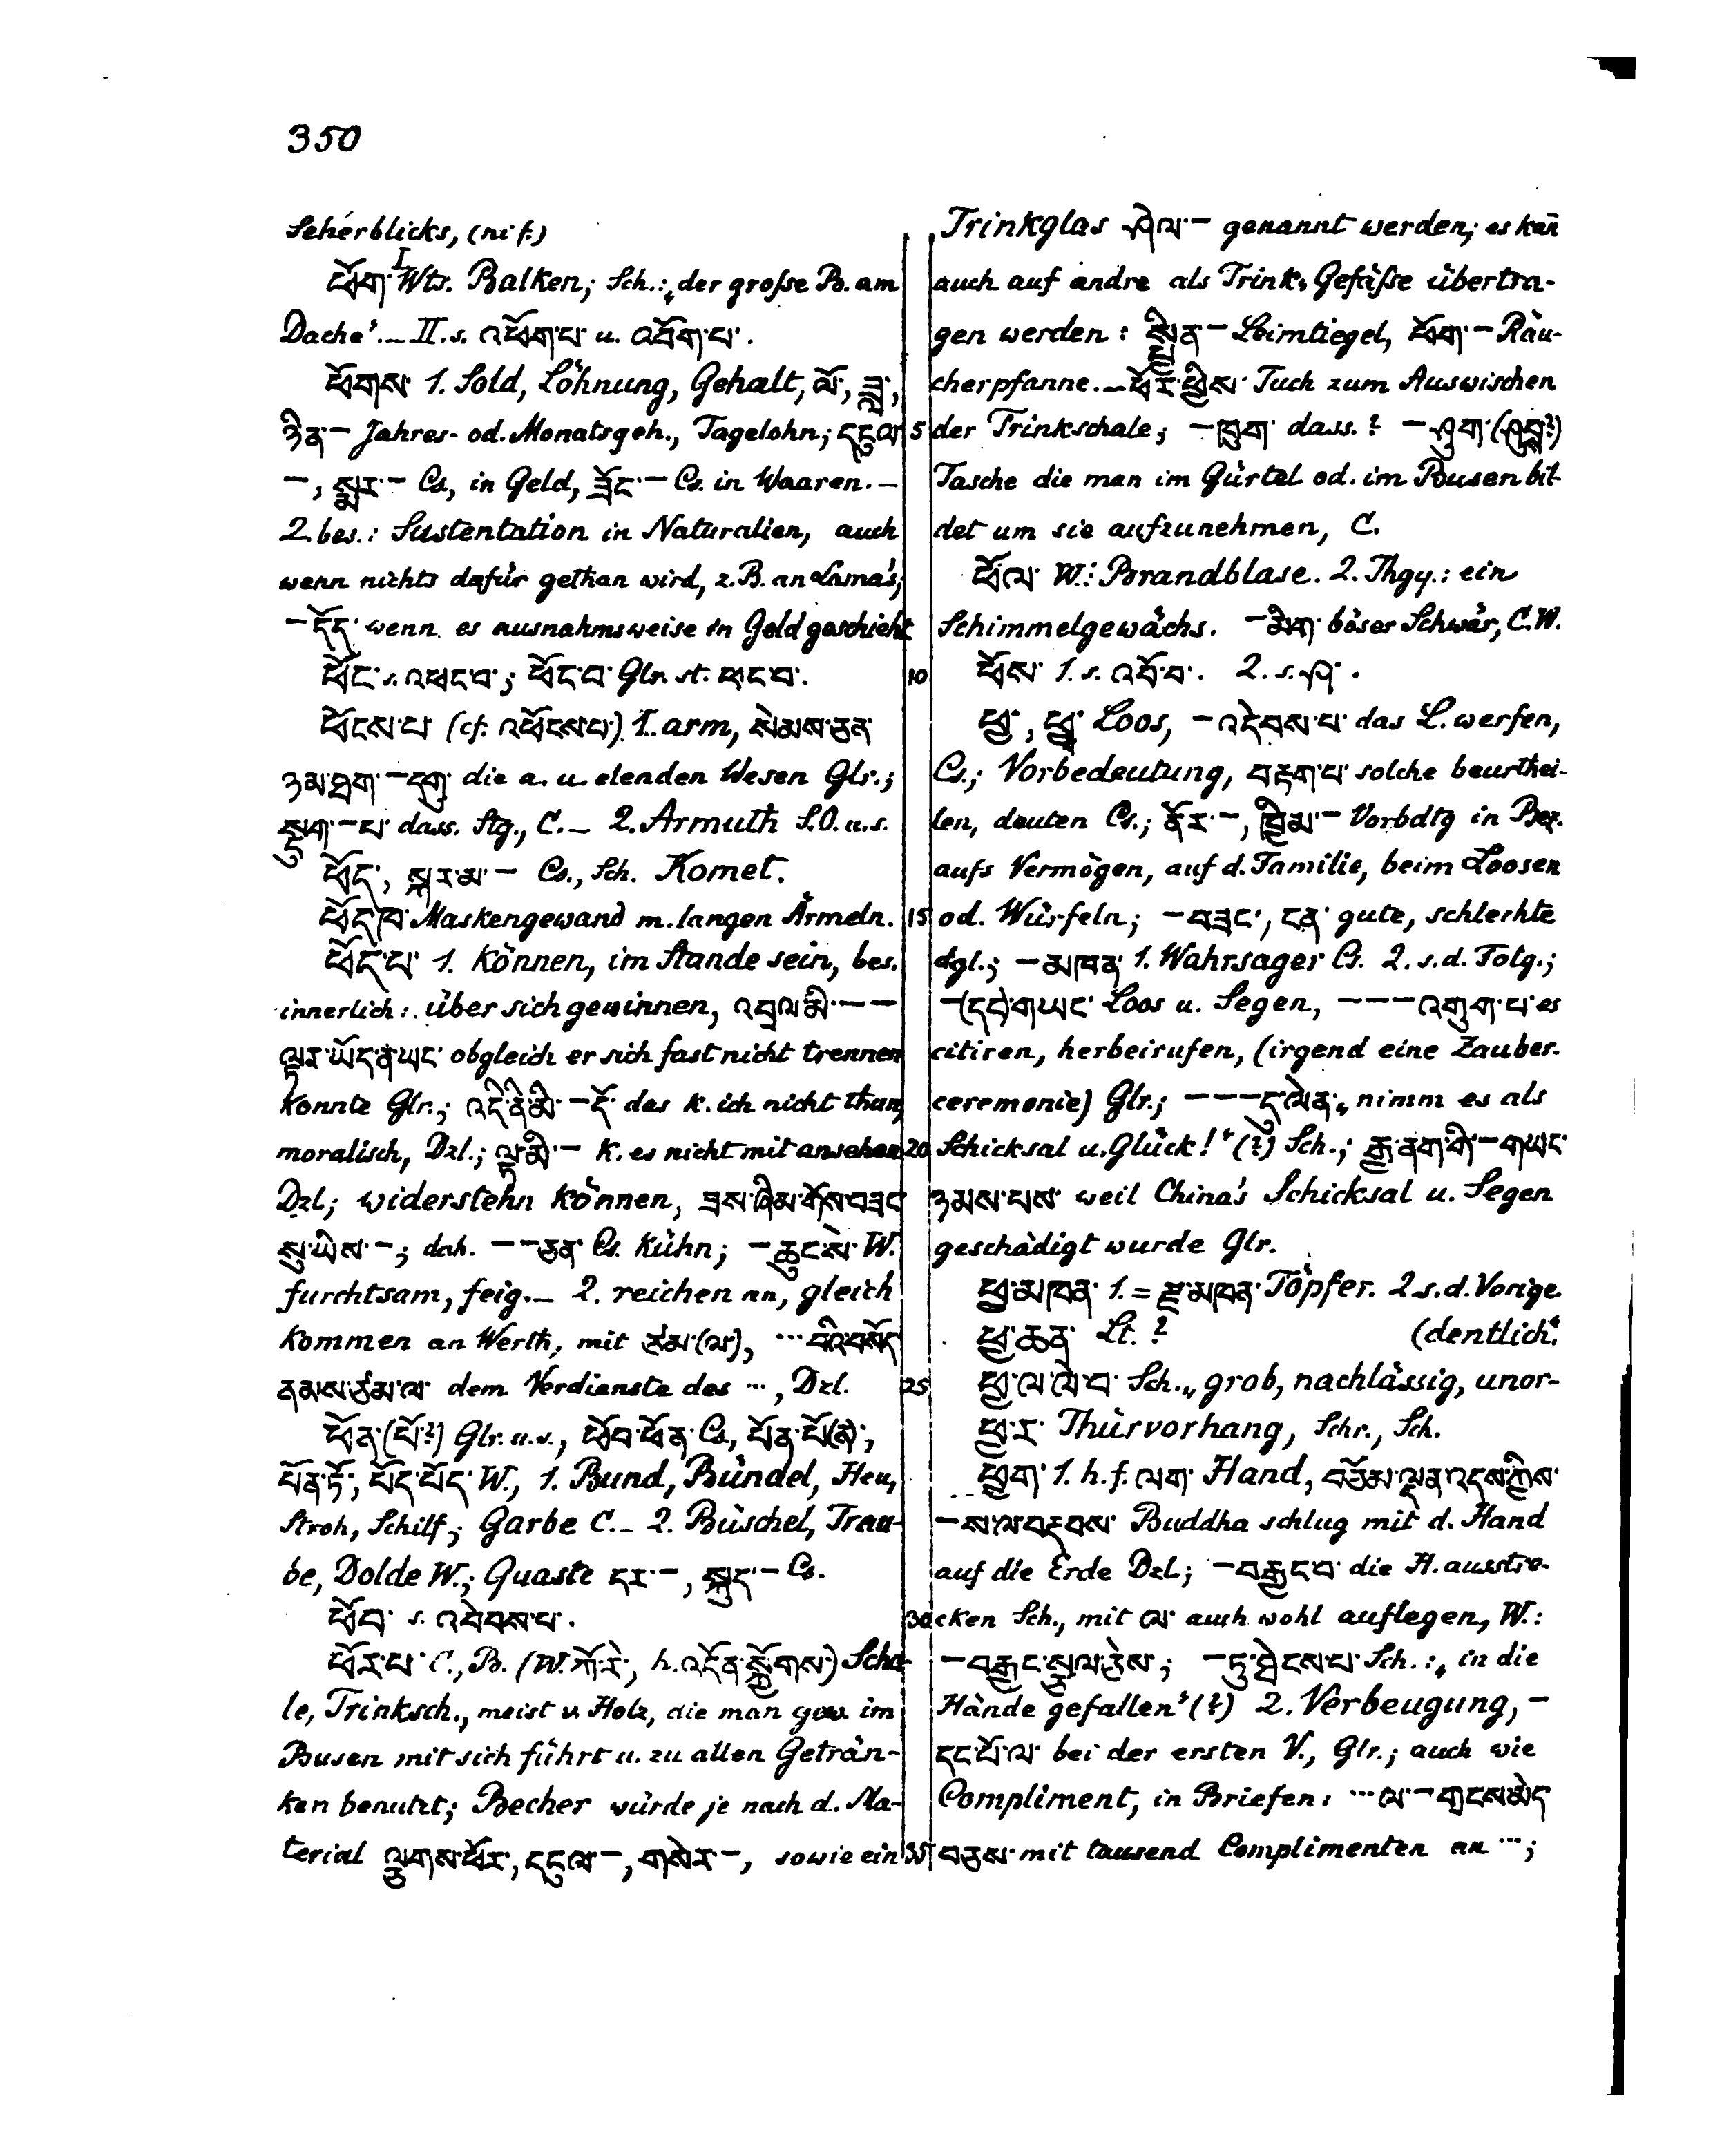 350
Seherblicks, (ni f.)
ཕྱོག་ I Wts. Balken; Sch.: „der große B. am
Dache". — II. s. འཕྱོག་པ་ u. འབོག་པ་.
ཕོགས་ 1. Sold, Löhnung, Gehalt, ལོ་, ཟླ་,
ཉིན་ — Jahres- od. Monatsgeh., Tagelohn; དངུལ་
—, སྨར་ — Cs, in Geld, ཟོང་ — Cs. in Waaren. —
2. bes.: Sustentation in Naturalien, auch
wenn nichts dafür gethan wird, z. B. an Lama's;
— དོད་ wenn es ausnahmsweise in Geld geschieht
ཕོང་ s. འཕང་བ་; ཕོང་བ་ Glr. st. ཕང་བ་.
ཕོངས་པ་ (cf. འཕོངས་པ་) 1. arm, སེམས་ཅན་
ཉམ་ཐག་ — དགུ་ die a. u. elenden Wesen Glr.;
སྡུག་ — པ་ dass. Stg., C. — 2. Armuth S.O. u. s.
ཕོད་, སྐར་མ་ — Cs., Sch. Komet.
ཕོད་ཁ་ Maskengewand m. langen Ärmeln.
ཕོད་པ་ 1. können, im Stande sein, bes.
innerlich: über sich gewinnen, འབྲལ་མི་ — —
ལྟར་ཡོད་ན་ཡང་ obgleich er sich fast nicht trennen
konnte Glr.; འདི་ནི་མི་ — དོ་ das k. ich nicht thun,
moralisch, Dzl.; ལྟ་མི་ — k. es nicht mit ansehen
Dzl; widerstehn können, ཟས་ཞིམ་གོས་བཟང་
སུ་ཡིས་ —; dah. — — ཅན་ Cs. kühn; — ཆུང་སེ་ W.
furchtsam, feig. — 2. reichen an, gleich
kommen an Werth, mit ཙམ་(ལ་), ... བའི་བསོད་
ནམས་ཙམ་ལ་ dem Verdienste des ..., Dzl.
ཕོན་(པོ་?) Glr. u. s., ཕོབ་ཕོན་ Cs, པོན་པོ་(ན་),
པོན་ཏོ་, པོད་པོད་ W., 1. Bund, Bündel, Heu,
Stroh, Schilf; Garbe C. — 2. Büschel, Trau-
be, Dolde W.; Quaste དར་ —, སྐུད་ — Cs.
ཕོབ་ s. འབེབས་པ་.
ཕོར་པ་ C., B. (W. ཀོ་རེ་, h. འདོན་སྐྱོགས་) Scha-
le, Trinksch., meist v. Holz, die man gew. im
Busen mit sich führt u. zu allen Geträn-
ken benutzt; Becher würde je nach d. Ma-
terial ལྕགས་ཕོར་, དངུལ་ —, གསེར་ —, sowie ein
Trinkglas ཤེལ་ — genannt werden; es kañ
auch auf andre als Trink-Gefäße übertra-
gen werden: སྤྱིན་ — Leimtiegel, ཕོག་ — Räu-
cherpfanne. — ཕོར་ཕྱིས་ Tuch zum Auswischen
5 der Trinkschale; — ཁུག་ dass.? — ཤུག་ (ཤུབས་?)
Tasche die man im Gürtel od. im Busen bil-
det um sie aufzunehmen, C.
ཕོ་ལ་ W.: Brandblase. 2. Thgy.: ein
Schimmelgewächs. — མིག་ böser Schwär, C. W.
10 ཕོས་ 1. s. འབོ་བ་. 2. s. ཤ་.
ཕྱ་, ཕྱྭ་ Loos, — འདེབས་པ་ das L. werfen,
Cs.; Vorbedeutung, བརྟག་པ་ solche beurthei-
len, deuten Cs.; ནོར་ —, ཁྱིམ་ — Vorbdtg in Bez.
aufs Vermögen, auf d. Familie, beim Loosen
15 od. Würfeln; — བཟང་, ངན་ gute, schlechte
dgl.; — མཁན་ 1. Wahrsager Cs. 2. s. d. Folg.;
— (དང་)གཡང་ Loos u. Segen, — — — འགུག་པ་ es
citiren, herbeirufen, (irgend eine Zauber-
ceremonie) Glr.; — — — དུ་ལེན་ „nimm es als
20 Schicksal u. Glück!" (?) Sch.; རྒྱ་ནག་གི་ — གཡང་
ཉམས་པས་ weil China's Schicksal u. Segen
geschädigt wurde Glr.
ཕྱ་མཁན་ 1. = རྫ་མཁན་ Töpfer. 2 s. d. Vorige
ཕྱ་ཆན་ Lt. ? (dentlich".
25 ཕྱ་ལ་ལེ་བ་ Sch. „grob, nachlässig, unor-
ཕྱ་ར་ Thürvorhang, Schr., Sch.
ཕྱག་ 1. h. f. ལག་ Hand, བཅོམ་ལྡན་འདས་ཀྱིས་
— ས་ལ་བརྡབས་ Buddha schlug mit d. Hand
auf die Erde Dzl; — བརྐྱང་བ་ die H. ausstre-
30 cken Sch., mit ལ་ auch wohl auflegen, W.:
— བརྐྱང་སྩལ་ཅེས་; — ཏུ་ཐེངས་པ་ Sch.: „in die
Hände gefallen" (?) 2. Verbeugung, —
དང་པོ་ལ་ bei der ersten V., Glr.; auch wie
Compliment, in Briefen: ... ལ་ — གྲངས་མེད་
35 བཅས་ mit tausend Complimenten an ...;